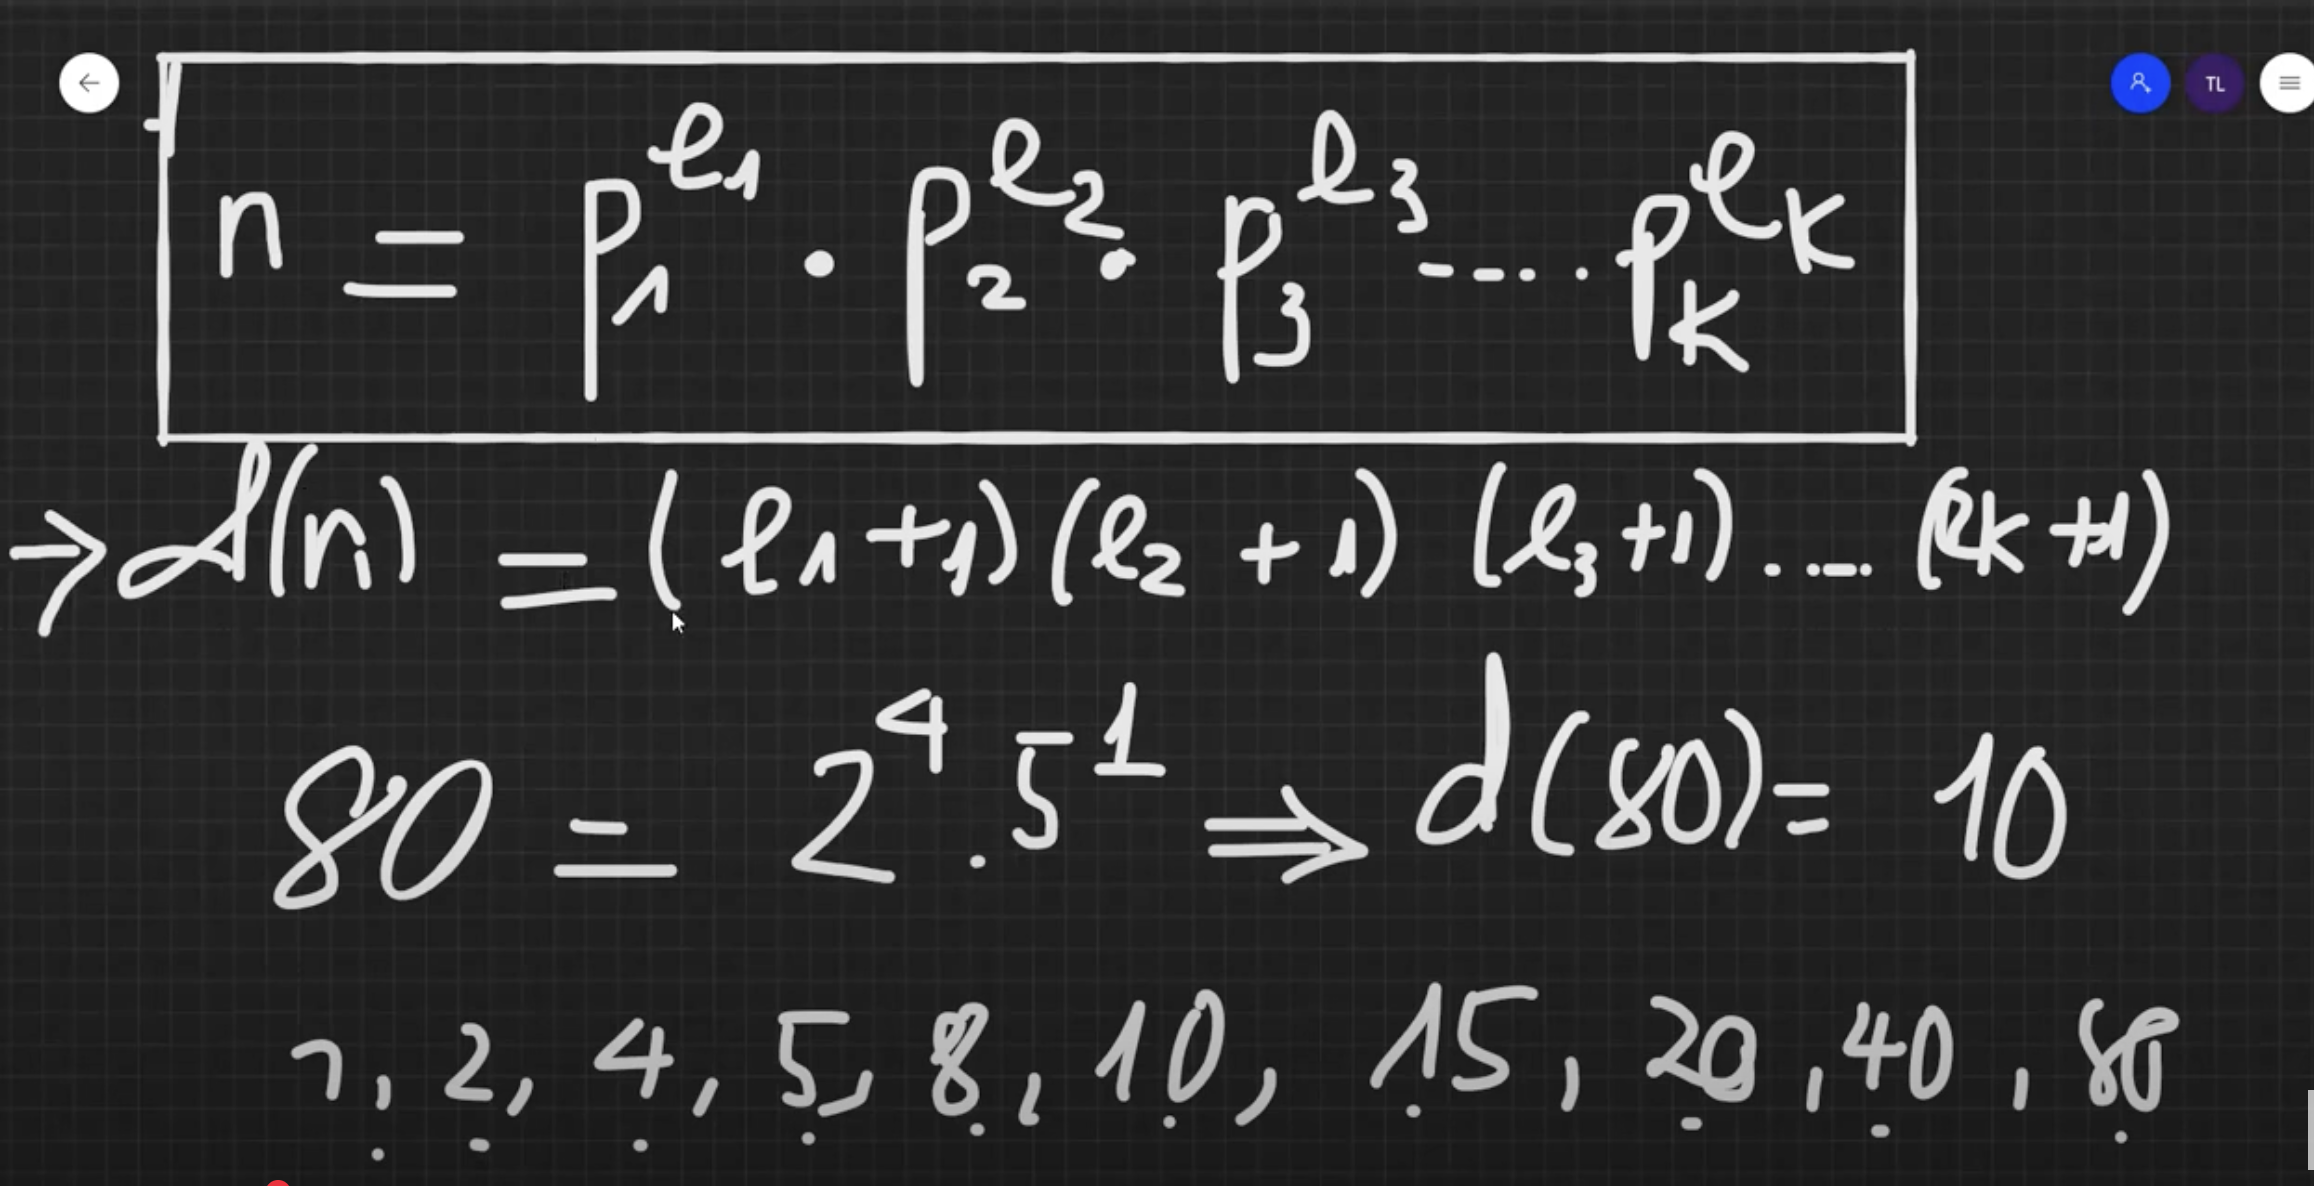 TL
n = p₁^e₁ · p₂^e₂ · p₃^e₃ ---- · p_k^e_k
→ d(n) = (e₁+1)(e₂+1)(e₃+1)....(e_k+1)
80 = 2⁴ . 5¹ ⇒ d(80) = 10
1, 2, 4, 5, 8, 10, 15, 20, 40, 80